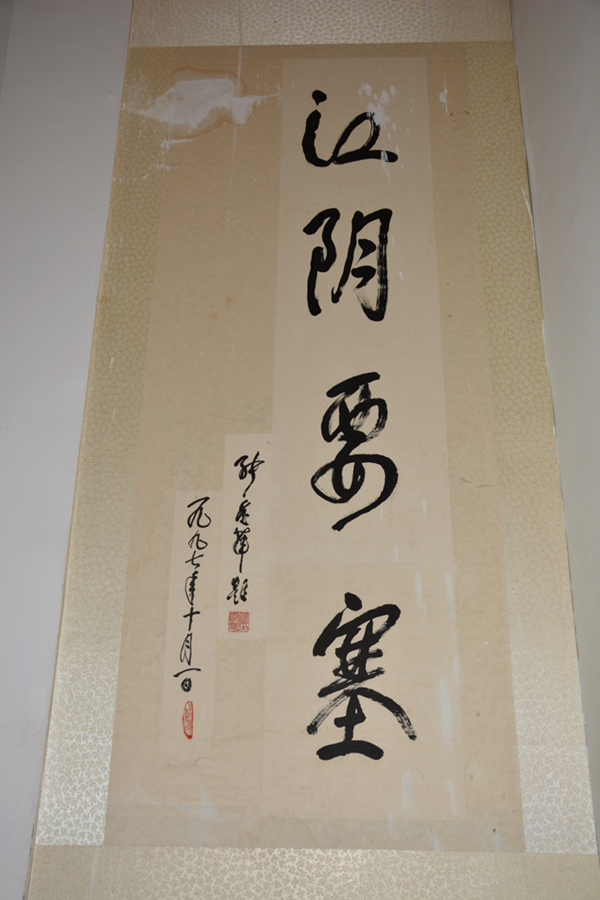 江阴要塞
题
一九九七年十月一日